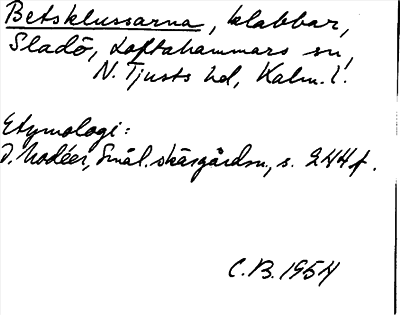 Betsklussarna, klabbar,
Sladö, Loftahammars sn,
N. Tjusts hd, Kalm. l.
Etymologi:
I. Modéer, Smål. skärgårdsn, s. 244 f.
C.B. 1954